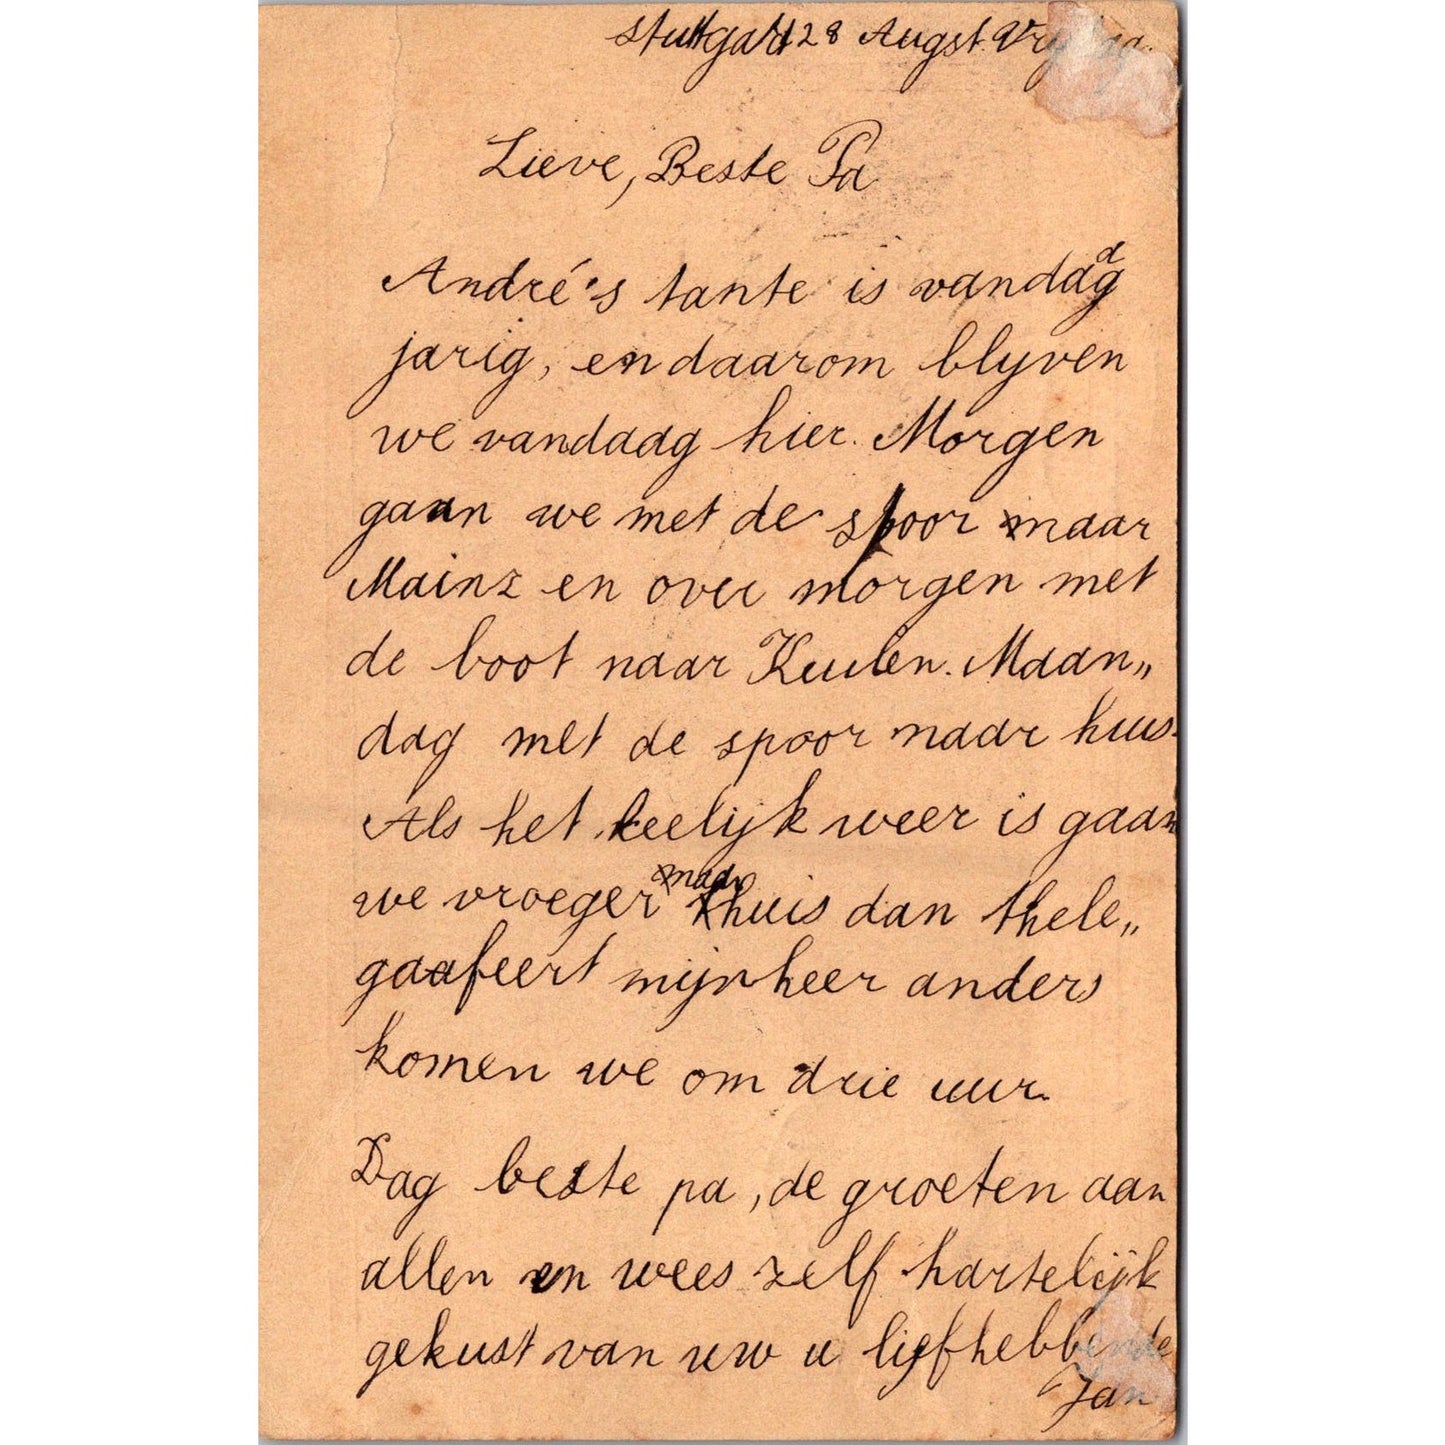 Stuttgart 28 Augst. Vrydag.
Lieve, Beste Pa
André's tante is vandaag
jarig, en daarom blyven
we vandaag hier. Morgen
gaan we met de spoor naar
Mainz en over morgen met
de boot naar Keulen. Maan„
dag met de spoor naar huis.
Als het leelijk weer is gaan
we vroeger naar huis dan thele„
gaafeert mijnheer anders
komen we om drie uur.
Dag beste pa, de groeten aan
allen en wees zelf hartelijk
gekust van uw u liefhebbende
Jan